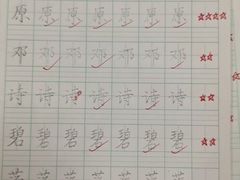 原原原原原原原
邓邓邓邓邓邓邓
诗诗诗诗诗诗诗
碧碧碧碧碧碧碧